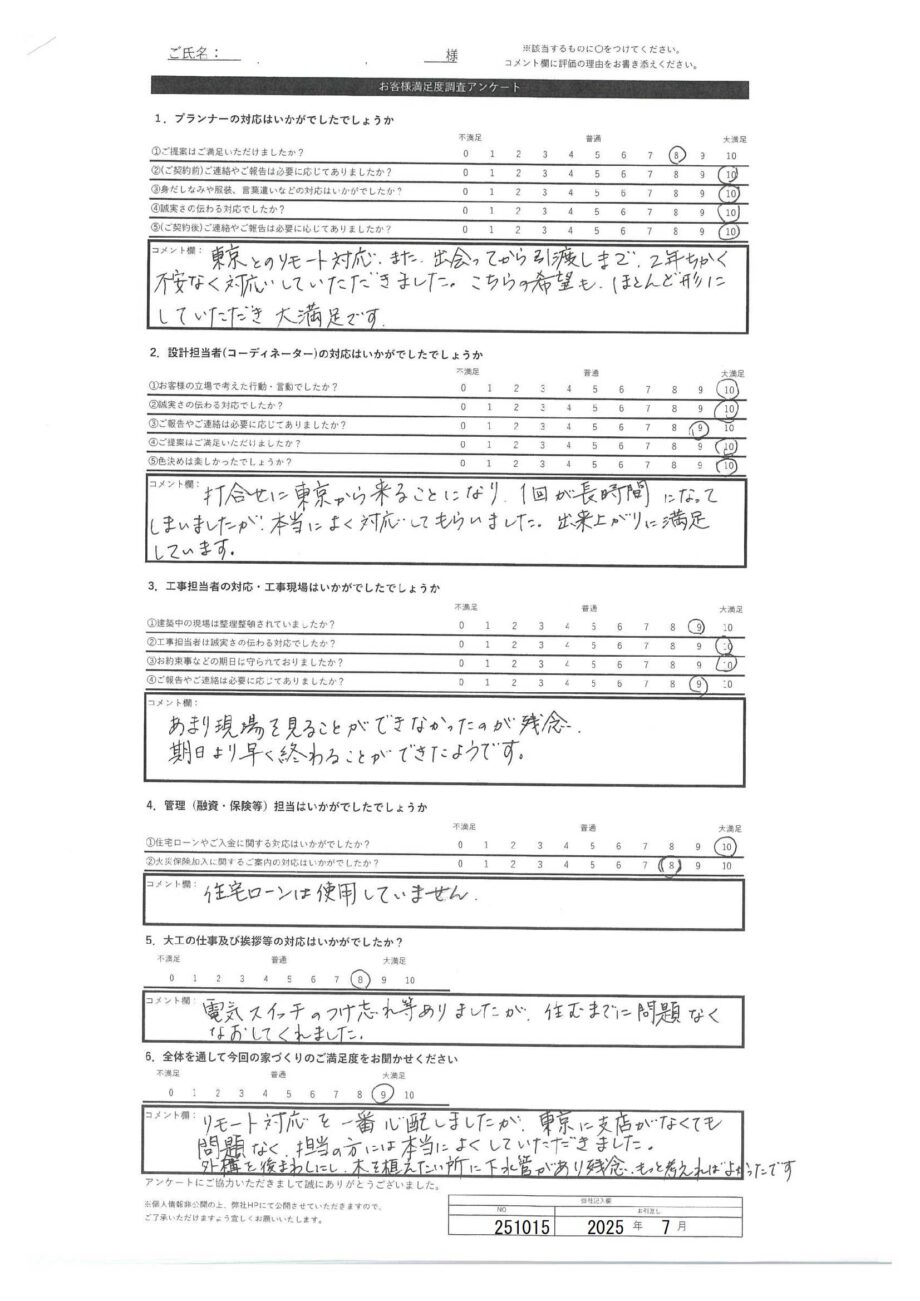 ご氏名： 様
※該当するものに〇をつけてください。
コメント欄に評価の理由をお書き添えください。
お客様満足度調査アンケート
1．プランナーの対応はいかがでしたでしょうか
不満足 普通 大満足
①ご提案はご満足いただけましたか？ 0 1 2 3 4 5 6 7 8 9 10
②(ご契約前)ご連絡やご報告は必要に応じてありましたか？ 0 1 2 3 4 5 6 7 8 9 10
③身だしなみや服装、言葉遣いなどの対応はいかがでしたか？ 0 1 2 3 4 5 6 7 8 9 10
④誠実さの伝わる対応でしたか？ 0 1 2 3 4 5 6 7 8 9 10
⑤(ご契約後)ご連絡やご報告は必要に応じてありましたか？ 0 1 2 3 4 5 6 7 8 9 10
コメント欄： 東京とのリモート対応、また、出会ってから引渡しまで、2年ちかく
不安なく対応していただきました。こちらの希望も、ほとんど形に
していただき 大満足です.
2．設計担当者(コーディネーター)の対応はいかがでしたでしょうか
不満足 普通 大満足
①お客様の立場で考えた行動・言動でしたか？ 0 1 2 3 4 5 6 7 8 9 10
②誠実さの伝わる対応でしたか？ 0 1 2 3 4 5 6 7 8 9 10
③ご報告やご連絡は必要に応じてありましたか？ 0 1 2 3 4 5 6 7 8 9 10
④ご提案はご満足いただけましたか？ 0 1 2 3 4 5 6 7 8 9 10
⑤色決めは楽しかったでしょうか？ 0 1 2 3 4 5 6 7 8 9 10
コメント欄： 打合せに東京から来ることになり、1回が長時間になって
しまいましたが、本当によく対応してもらいました。出来上がりに満足
しています。
3．工事担当者の対応・工事現場はいかがでしたでしょうか
不満足 普通 大満足
①建築中の現場は整理整頓されていましたか？ 0 1 2 3 4 5 6 7 8 9 10
②工事担当者は誠実さの伝わる対応でしたか？ 0 1 2 3 4 5 6 7 8 9 10
③お約束事などの期日は守られておりましたか？ 0 1 2 3 4 5 6 7 8 9 10
④ご報告やご連絡は必要に応じてありましたか？ 0 1 2 3 4 5 6 7 8 9 10
コメント欄：
あまり現場を見ることができなかったのが残念.
期日より早く終わることができたようです。
4．管理（融資・保険等）担当はいかがでしたでしょうか
不満足 普通 大満足
①住宅ローンやご入金に関する対応はいかがでしたか？ 0 1 2 3 4 5 6 7 8 9 10
②火災保険加入に関するご案内の対応はいかがでしたか？ 0 1 2 3 4 5 6 7 8 9 10
コメント欄： 住宅ローンは使用していません.
5．大工の仕事及び挨拶等の対応はいかがでしたか？
不満足 普通 大満足
0 1 2 3 4 5 6 7 8 9 10
コメント欄： 電気スイッチのつけ忘れ等ありましたが、住むまでに問題なく
なおしてくれました.
6．全体を通して今回の家づくりのご満足度をお聞かせください
不満足 普通 大満足
0 1 2 3 4 5 6 7 8 9 10
コメント欄： リモート対応を一番心配しましたが、東京に支店がなくても
問題なく、担当の方には本当によくしていただきました。
外構を後まわしにし、木を植えたい所に下水管があり残念、もっと考えればよかったです
アンケートにご協力いただきまして誠にありがとうございました。
※個人情報非公開の上、弊社HPにて公開させていただきますので、
ご了承いただけますよう宜しくお願いいたします。
弊社記入欄
NO お引渡し
251015 2025 年 7 月